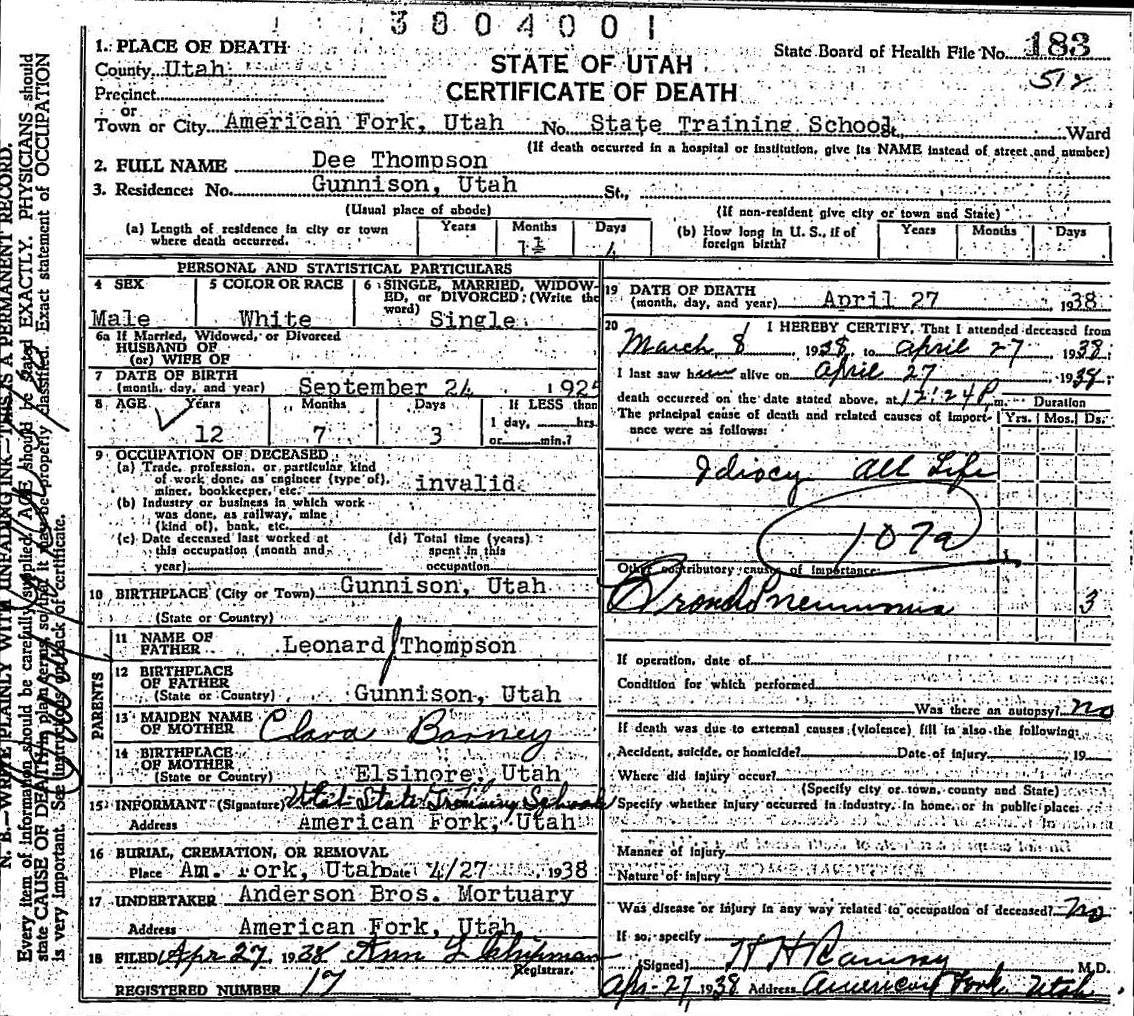 3804001
1. PLACE OF DEATH
State Board of Health File No. 183
County Utah
STATE OF UTAH
512
Precinct
CERTIFICATE OF DEATH
or
Town or City American Fork, Utah No. State Training School St., Ward
(If death occurred in a hospital or institution, give its NAME instead of street and number)
2. FULL NAME Dee Thompson
3. Residence: No. Gunnison, Utah St.,
(Usual place of abode) (If non-resident give city or town and State)
(a) Length of residence in city or town where death occurred. Years Months Days 4
(b) How long in U. S., if of foreign birth? Years Months Days
PERSONAL AND STATISTICAL PARTICULARS
4 SEX Male
5 COLOR OR RACE White
6 SINGLE, MARRIED, WIDOWED, or DIVORCED: (Write the word) Single
6a If Married, Widowed, or Divorced
HUSBAND OF
(or) WIFE OF
7 DATE OF BIRTH
(month, day, and year) September 24 1925
8 AGE Years Months Days If LESS than
1 day, hrs.
12 7 3 or min.?
9 OCCUPATION OF DECEASED
(a) Trade, profession, or particular kind
of work done, as engineer (type of), invalid
miner, bookkeeper, etc.
(b) Industry or business in which work
was done, as railway, mine
(kind of), bank, etc.
(c) Date deceased last worked at
this occupation (month and
year)
(d) Total time (years)
spent in this
occupation
10 BIRTHPLACE (City or Town) Gunnison, Utah
(State or Country)
PARENTS
11 NAME OF
FATHER Leonard Thompson
12 BIRTHPLACE
OF FATHER
(State or Country) Gunnison, Utah
13 MAIDEN NAME
OF MOTHER Clara Barney
14 BIRTHPLACE
OF MOTHER
(State or Country) Elsinore, Utah
15 INFORMANT (Signature) Utah State Training School
Address American Fork, Utah
16 BURIAL, CREMATION, OR REMOVAL
Place Am. Fork, Utah Date 4/27 1938
17 UNDERTAKER Anderson Bros. Mortuary
Address American Fork, Utah
18 FILED Apr 27 1938 Ann L Chipman
Registrar.
REGISTERED NUMBER 17
19 DATE OF DEATH
(month, day, and year) April 27 1938
20 I HEREBY CERTIFY, That I attended deceased from
March 8 1938, to April 27, 1938;
I last saw him alive on April 27 1938;
death occurred on the date stated above, at 12:24 P. m.
The principal cause of death and related causes of importance were as follows:
Duration
Yrs. Mos. Ds.
Idiocy All Life
107a
Other contributory causes of importance:
Broncho Pneumonia 3
If operation, date of
Condition for which performed
Was there an autopsy? no
If death was due to external causes (violence) fill in also the following:
Accident, suicide, or homicide? Date of injury 19
Where did injury occur?
(Specify city or town, county and State)
Specify whether injury occurred in industry, in home, or in public place:
Manner of injury
Nature of injury
Was disease or injury in any way related to occupation of deceased? no
If so, specify
(Signed) M.D.
Apr-27, 1938 Address American Fork Utah
N. B.—WRITE PLAINLY WITH UNFADING INK—THIS IS A PERMANENT RECORD.
Every item of information should be carefully supplied. AGE should be stated EXACTLY. PHYSICIANS should
state CAUSE OF DEATH in plain terms, so that it may be properly classified. Exact statement of OCCUPATION
is very important. See instructions on back of certificate.